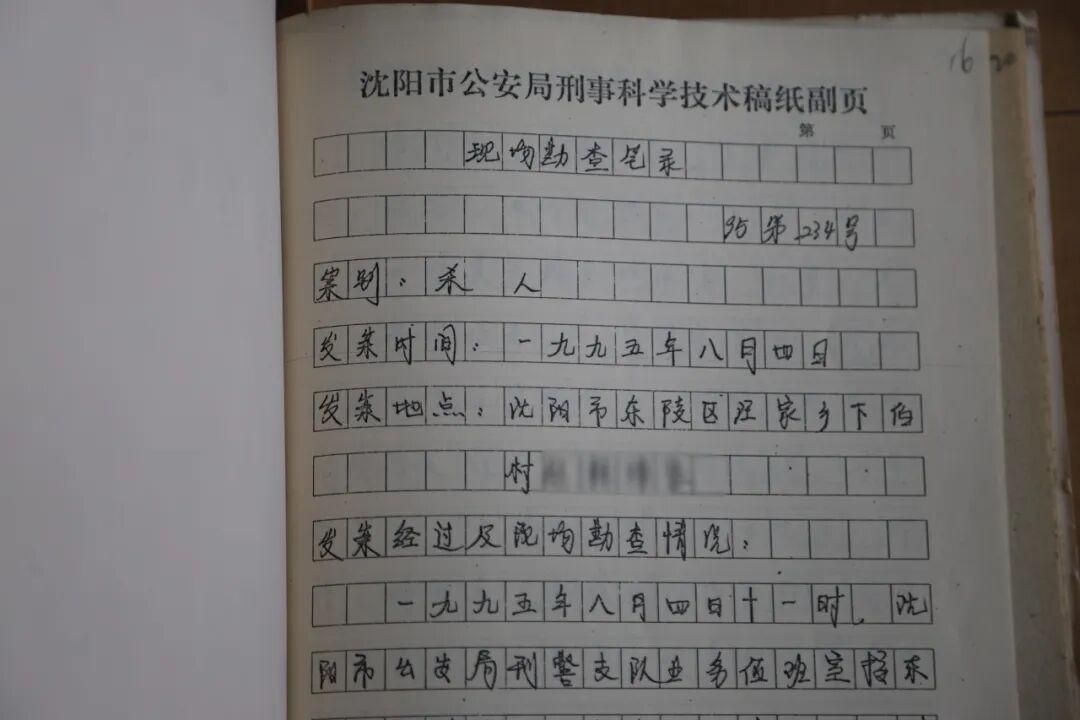 16 20
沈阳市公安局刑事科学技术稿纸副页
第 页
现场勘查笔录
95第234号
案别:杀人
发案时间:一九九五年八月四日
发案地点:沈阳市东陵区汪家乡下伯
村
发案经过及现场勘查情况:
一九九五年八月四日十一时,沈
阳市公安局刑警支队业务值班室接东